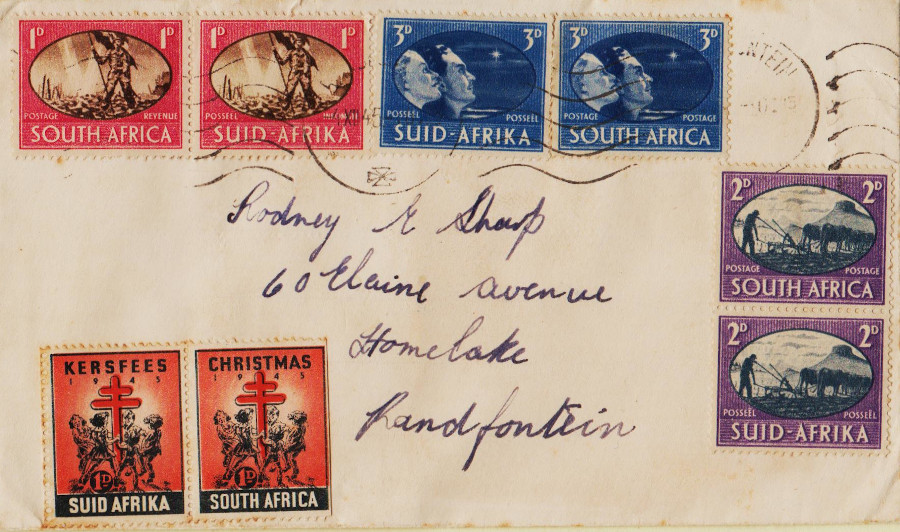 1D 1D
POSTAGE REVENUE
SOUTH AFRICA
1D 1D
POSSEËL INKOMSTE
SUID-AFRIKA
3D 3D
POSSEËL POSSEËL
SUID-AFRIKA
3D 3D
POSTAGE POSTAGE
SOUTH AFRICA
2D 2D
POSTAGE POSTAGE
SOUTH AFRICA
2D 2D
POSSEËL POSSEËL
SUID-AFRIKA
Rodney E Sharp
60 Elaine avenue
Homelake
Randfontein
KERSFEES
1945
1D
SUID AFRIKA
CHRISTMAS
1945
1D
SOUTH AFRICA